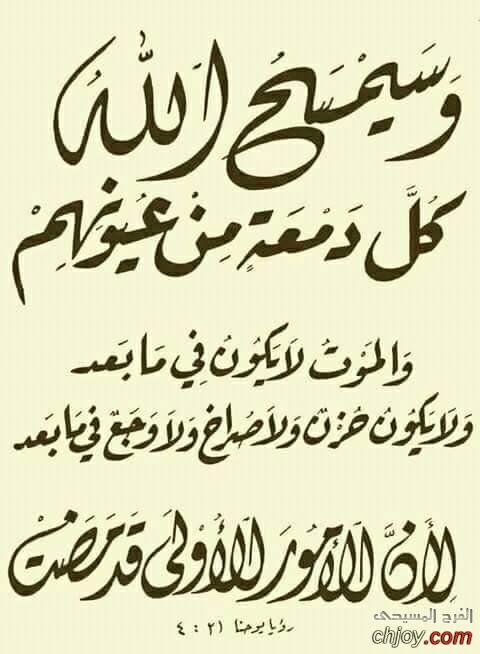 وَسَيَمْسَحُ اَللّٰهُ
كُلَّ دَمْعَةٍ مِنْ عُيُونِهِمْ
وَالمَوْتُ لَا يَكُونُ فِي مَا بَعد
وَلَا يَكُونُ حُزْنٌ وَلَا صُرَاخٌ وَلَا وَجَعٌ فِي مَا بَعد
لِأَنَّ اَلْأُمُورَ اَلْأُوْلَى قَد مَضَتْ
رؤيا يوحنا ٢١ : ٤
الفرح المسيحى
chjoy.com